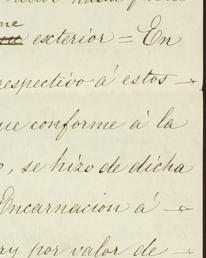 ne
escterior = En
respectivo á estos
ue conforme á la
o, se hizo de dicha
Encarnacion á
ry por valor de